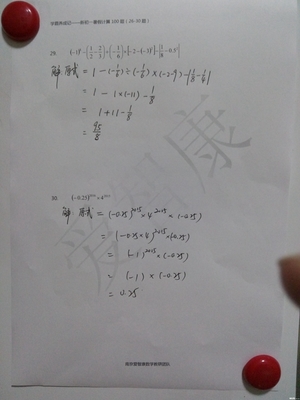 学霸养成记——有初一暑假计算 100 题(26-30 题)
29. (-1)⁴-(1/2-2/3)÷(-1/6)×[-2-(-3)²]-|1/8-0.5²|
解 原式 = 1-(-1/6)÷(-1/6)×(-2-9)-|1/8-1/4|
= 1-1×(-11)-1/8
= 1+11-1/8
= 95/8
30. (-0.25)²⁰¹⁶×4²⁰¹⁵
解 原式 = (-0.25)²⁰¹⁵×4²⁰¹⁵×(-0.25)
= (-0.25×4)²⁰¹⁵×(-0.25)
= (-1)²⁰¹⁵×(-0.25)
= (-1)×(-0.25)
= 0.25
爱智康